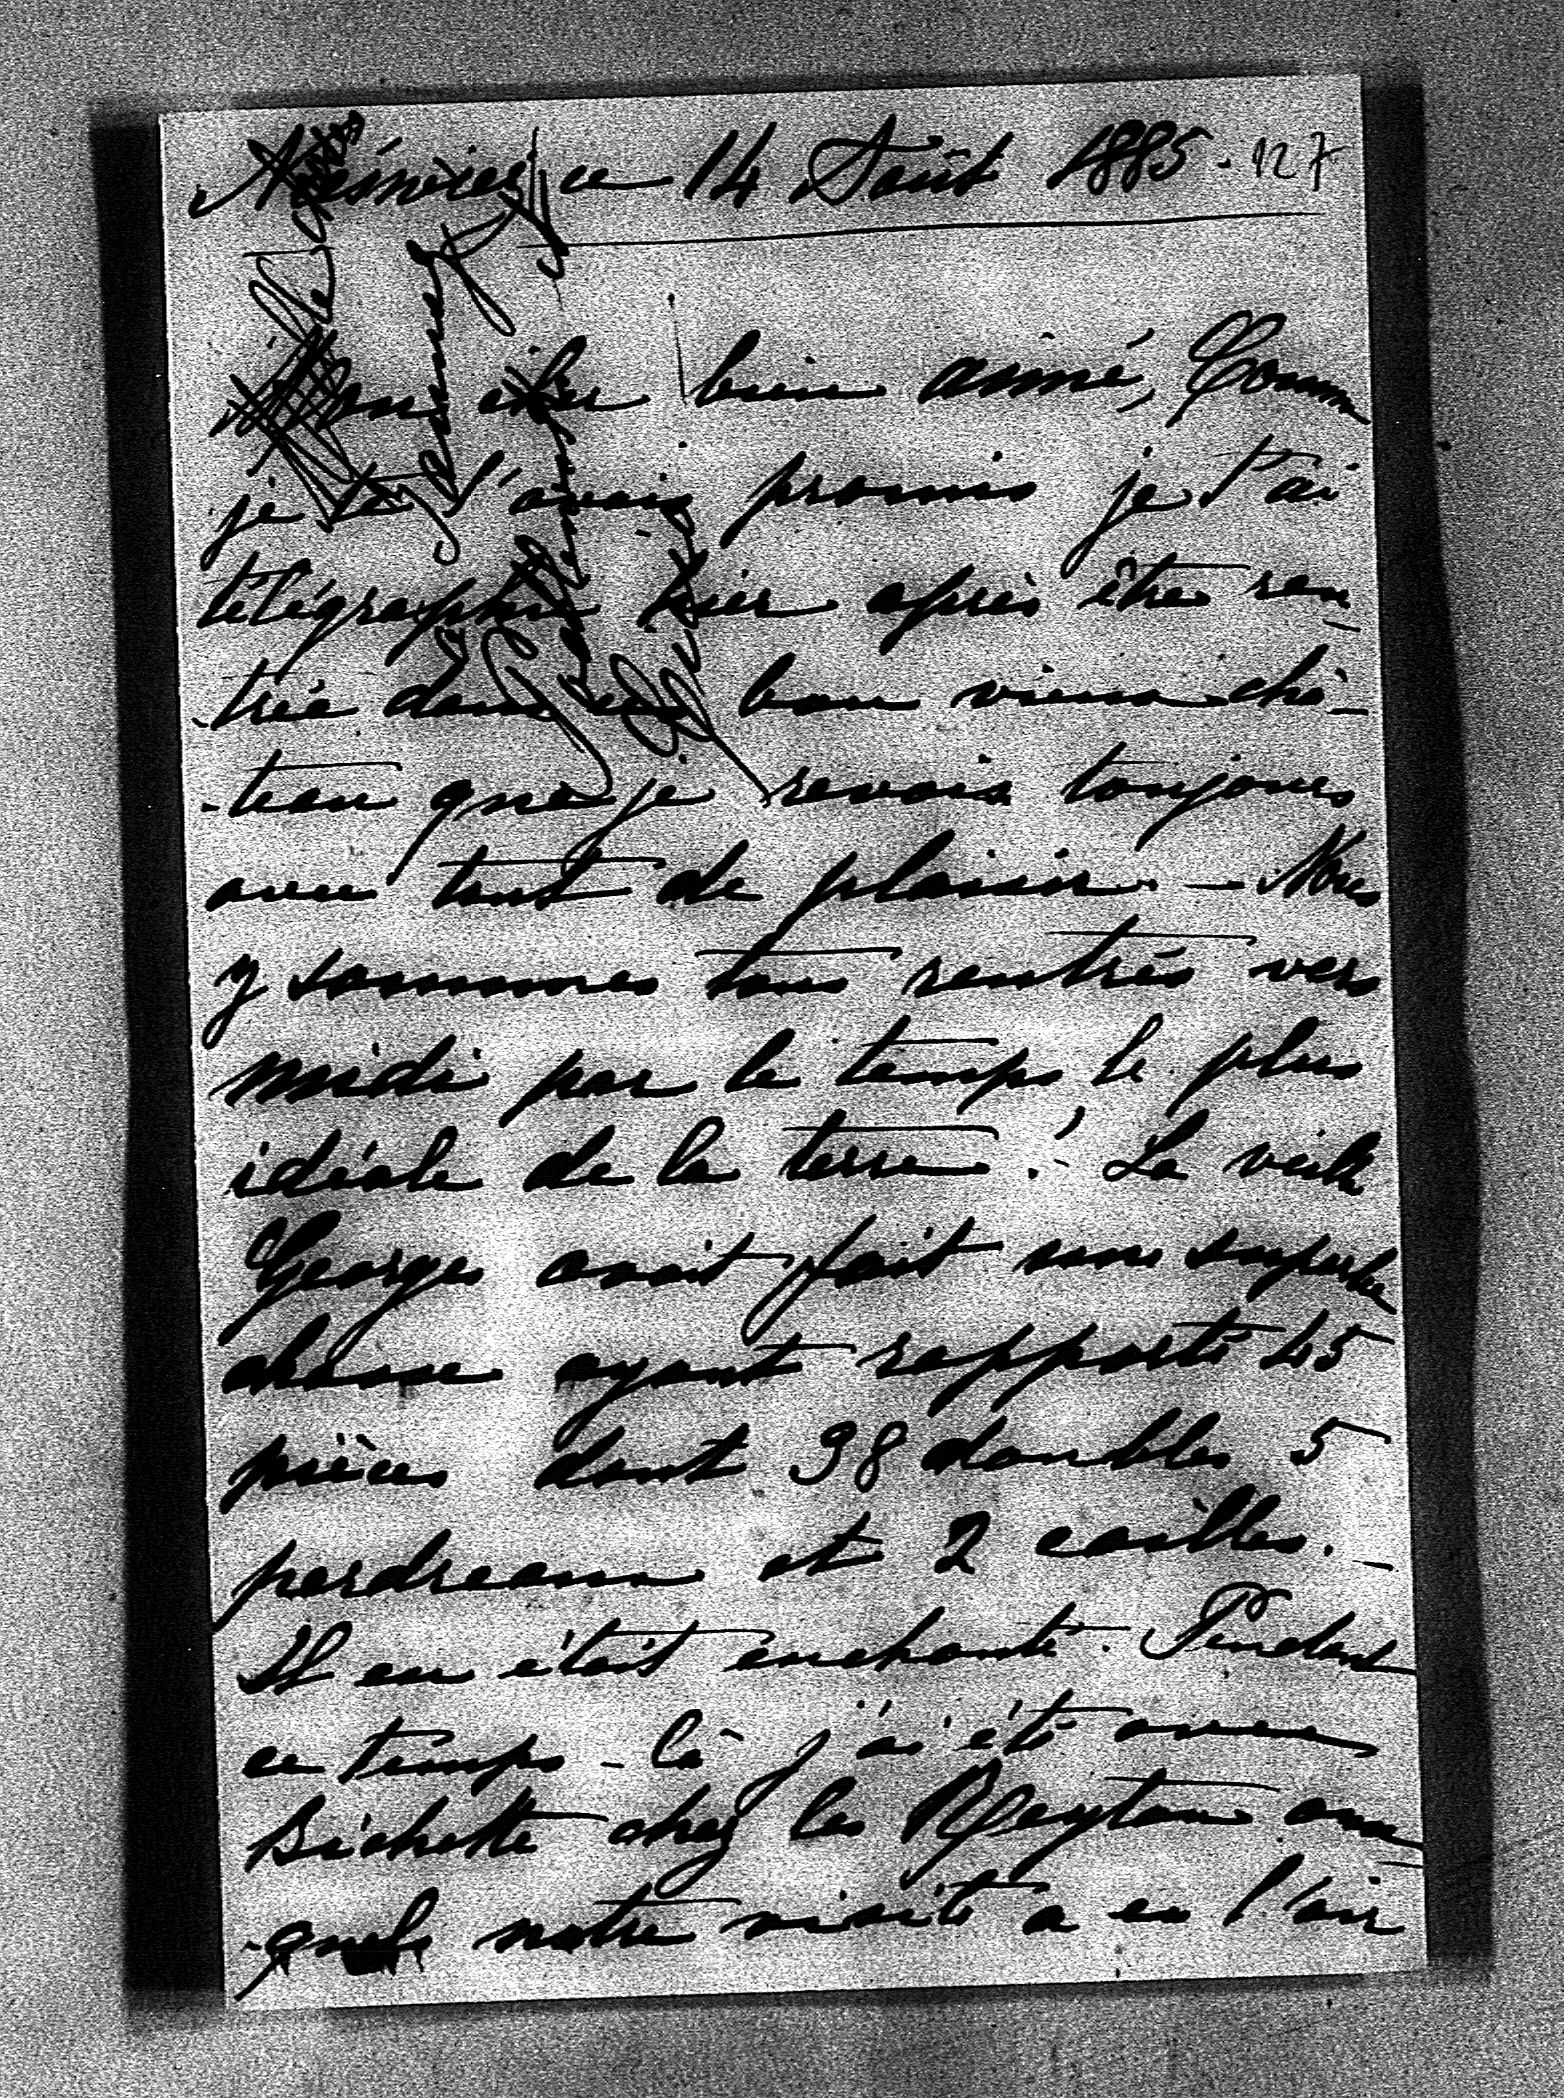 ce 14 Août 1885. 127
Mon cher bien aimé, Comme
je te l'avais promis je t'ai
télégraphié hier après être ren
-trée dans ce bon vieux châ-
-teau que je revois toujours
avec tant de plaisir. - Nous
y sommes tous rentrés vers
midi par le temps le plus
idéale de la terre! La veille
Georges avait fait une superbe
chasse ayant rapporté 45
pièces dont 38 doubles 5
perdreaux et 2 cailles. -
Il en était enchanté. Pendant
ce temps-là j'ai été avec
Bichette chez les aux
-quels notre visite a eu l'air